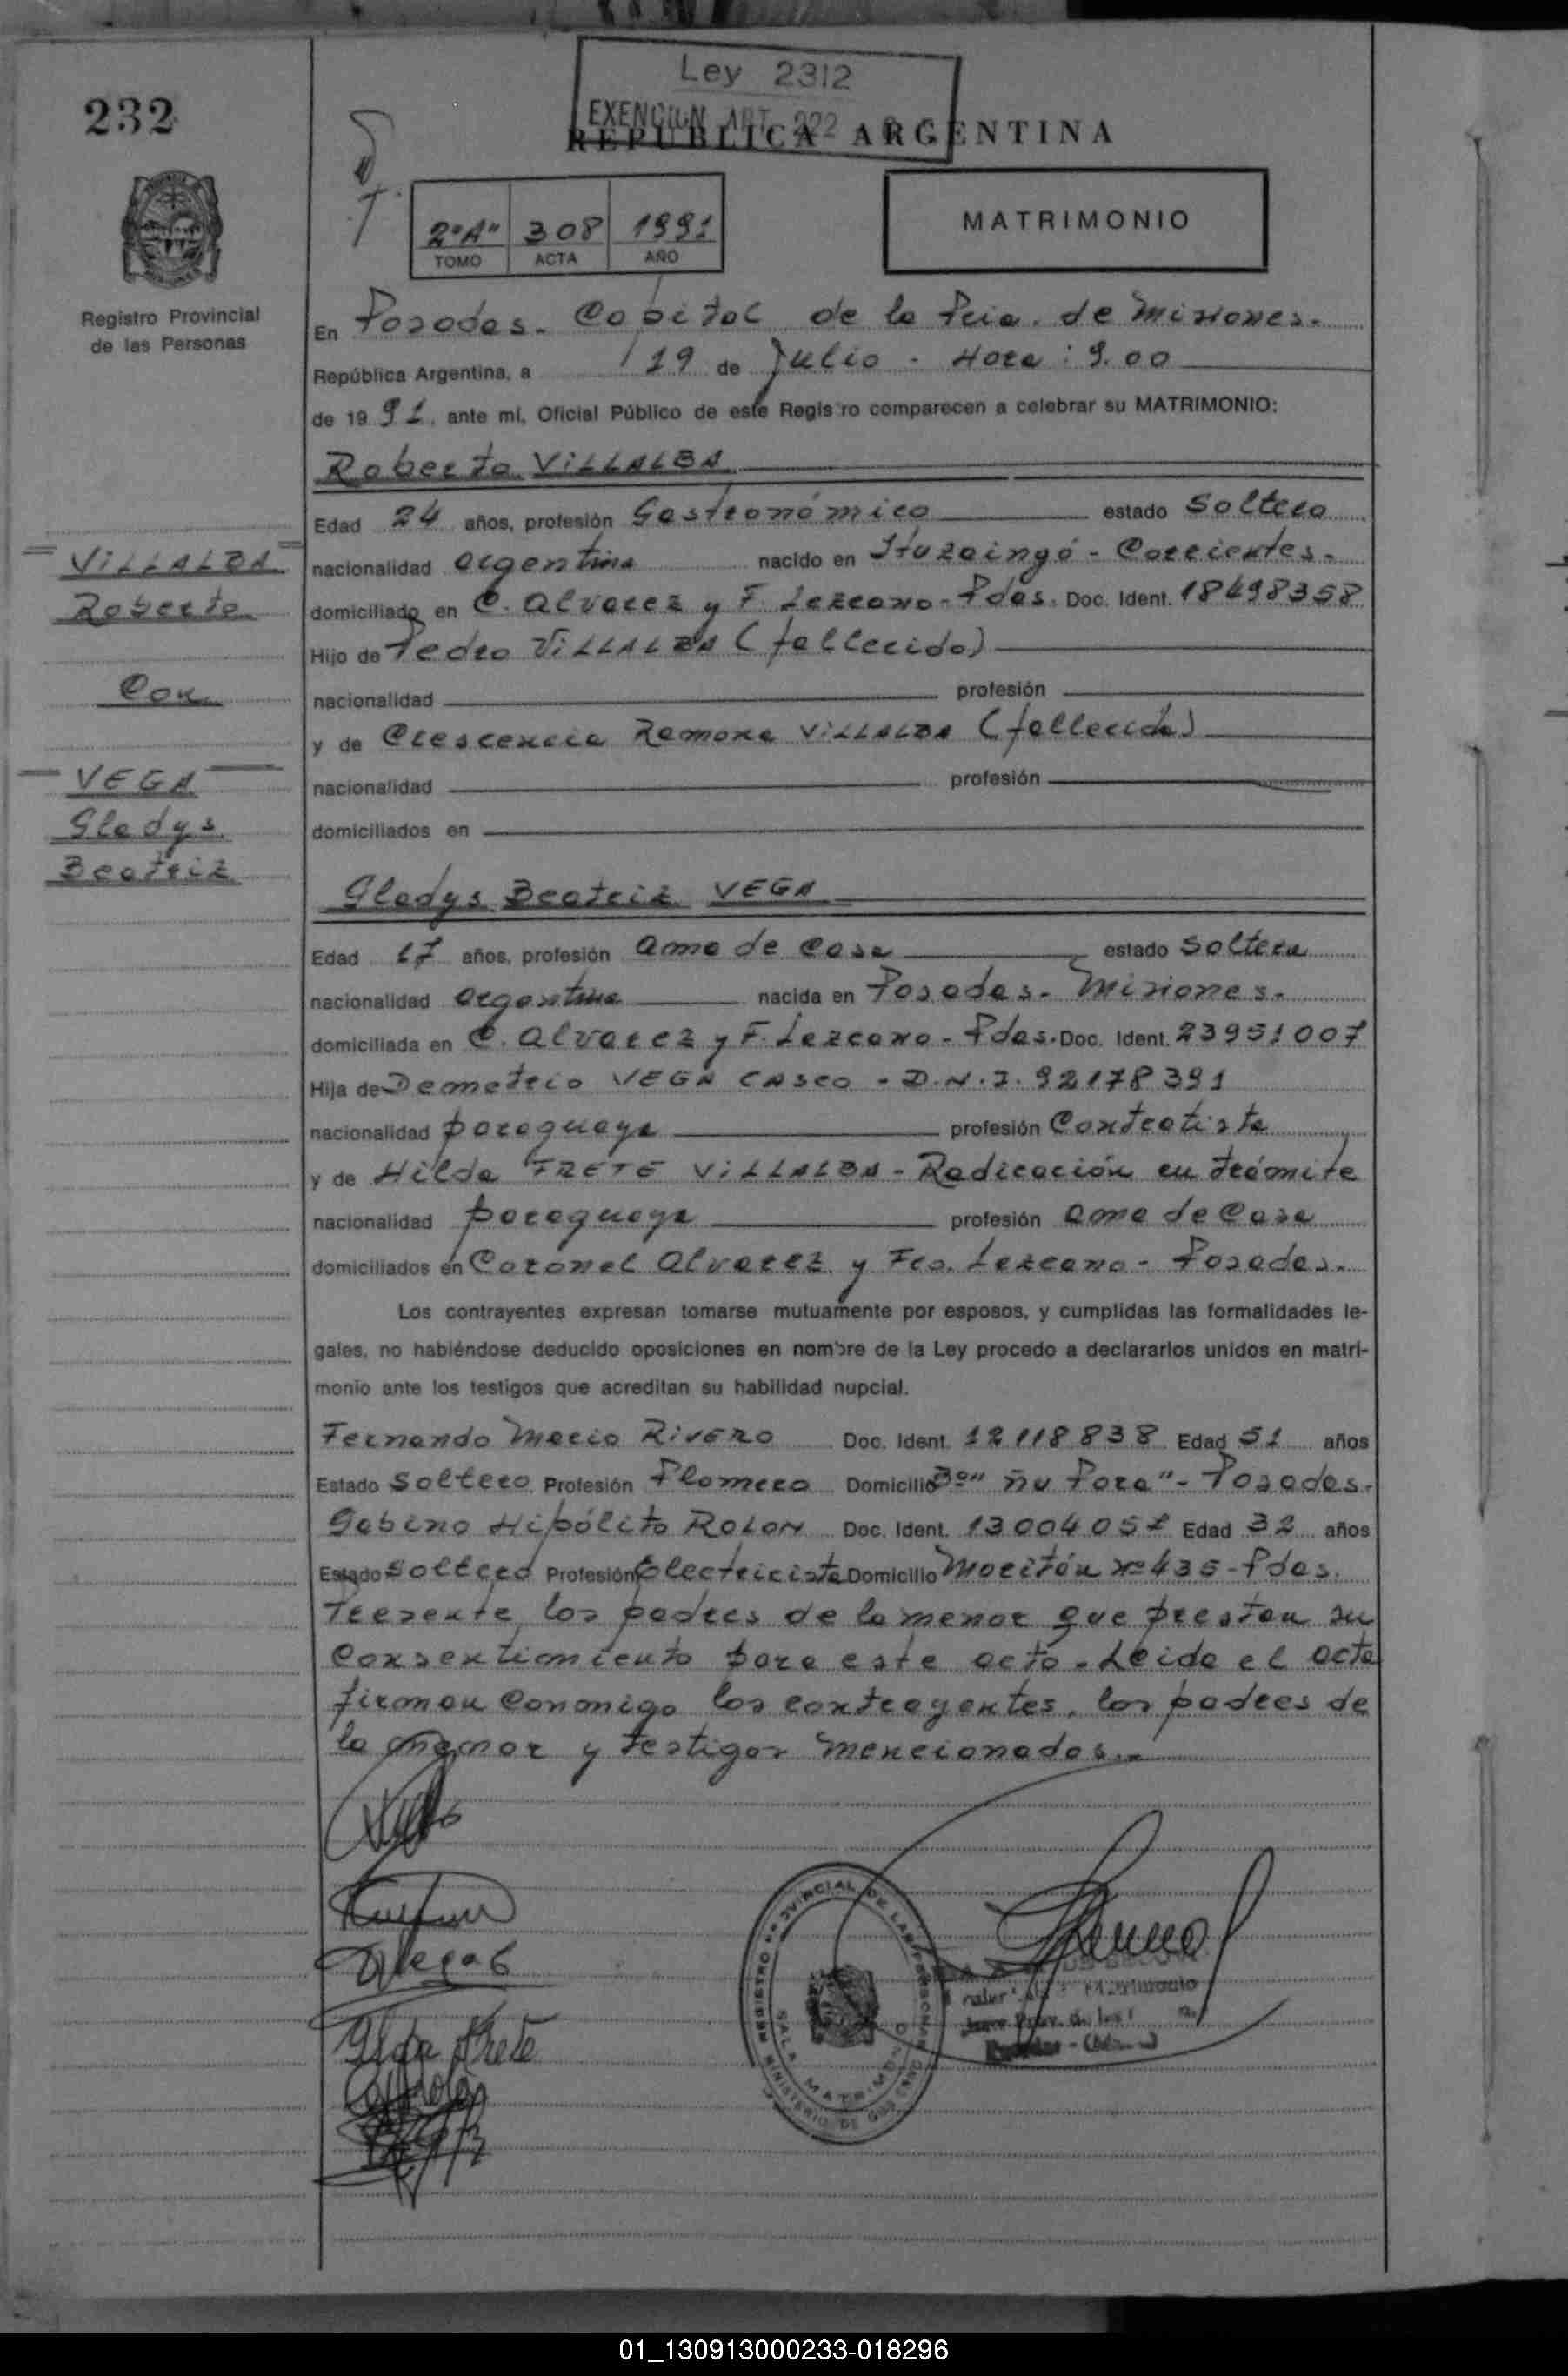 Ley 2312
EXENCION ART. 222
232
REPUBLICA ARGENTINA
MATRIMONIO
2º"A" 308 1991
TOMO ACTA AÑO
Registro Provincial
de las Personas
En Posadas. Capital de la Pcia. de Misiones.
República Argentina, a 19 de Julio - Hora: 9.00
de 1991, ante mi, Oficial Público de este Registro comparecen a celebrar su MATRIMONIO:
Roberto VILLALBA
Edad 24 años, profesión Gastronómico estado Soltero
nacionalidad argentina nacido en Ituzaingó - Corrientes.
domiciliado en C. Alvarez y F. Lezcano - Pdas. Doc. Ident. 18498358
Hijo de Pedro VILLALBA (fallecido)
nacionalidad profesión
y de Crescencia Ramona VILLALBA (fallecida)
nacionalidad profesión
domiciliados en
VILLALBA
Roberto
Con
VEGA
Gladys
Beatriz
Gladys Beatriz VEGA
Edad 17 años, profesión ama de casa estado soltera
nacionalidad argentina nacida en Posadas - Misiones.
domiciliada en C. Alvarez y F. Lezcano - Pdas. Doc. Ident. 23951007
Hija de Demetrio VEGA CASCO - D.N.I. 92178391
nacionalidad paraguaya profesión Contratista
y de Hilda FRETE VILLALBA - Radicación en trámite
nacionalidad paraguaya profesión ama de casa
domiciliados en Coronel Alvarez y Fco. Lezcano - Posadas.
Los contrayentes expresan tomarse mutuamente por esposos, y cumplidas las formalidades le-
gales, no habiéndose deducido oposiciones en nombre de la Ley procedo a declararlos unidos en matri-
monio ante los testigos que acreditan su habilidad nupcial.
Fernando Mario RIVERO Doc. Ident. 12118838 Edad 51 años
Estado soltero Profesión Plomero Domicilio Bº "Ñu Pora" - Posadas.
Gabino Hipólito ROLON Doc. Ident. 13004057 Edad 32 años
Estado soltero Profesión Electricista Domicilio Moritán Nº 435 - Pdas.
Presente los padres de la menor que prestan su
consentimiento para este acto. Leida el acta
firman conmigo los contrayentes, los padres de
la menor y testigos mencionados.
REGISTRO PROVINCIAL DE LAS PERSONAS
SALA MATRIMONIO
MINISTERIO DE GOBIERNO
Hilda Frete
01_130913000233-018296